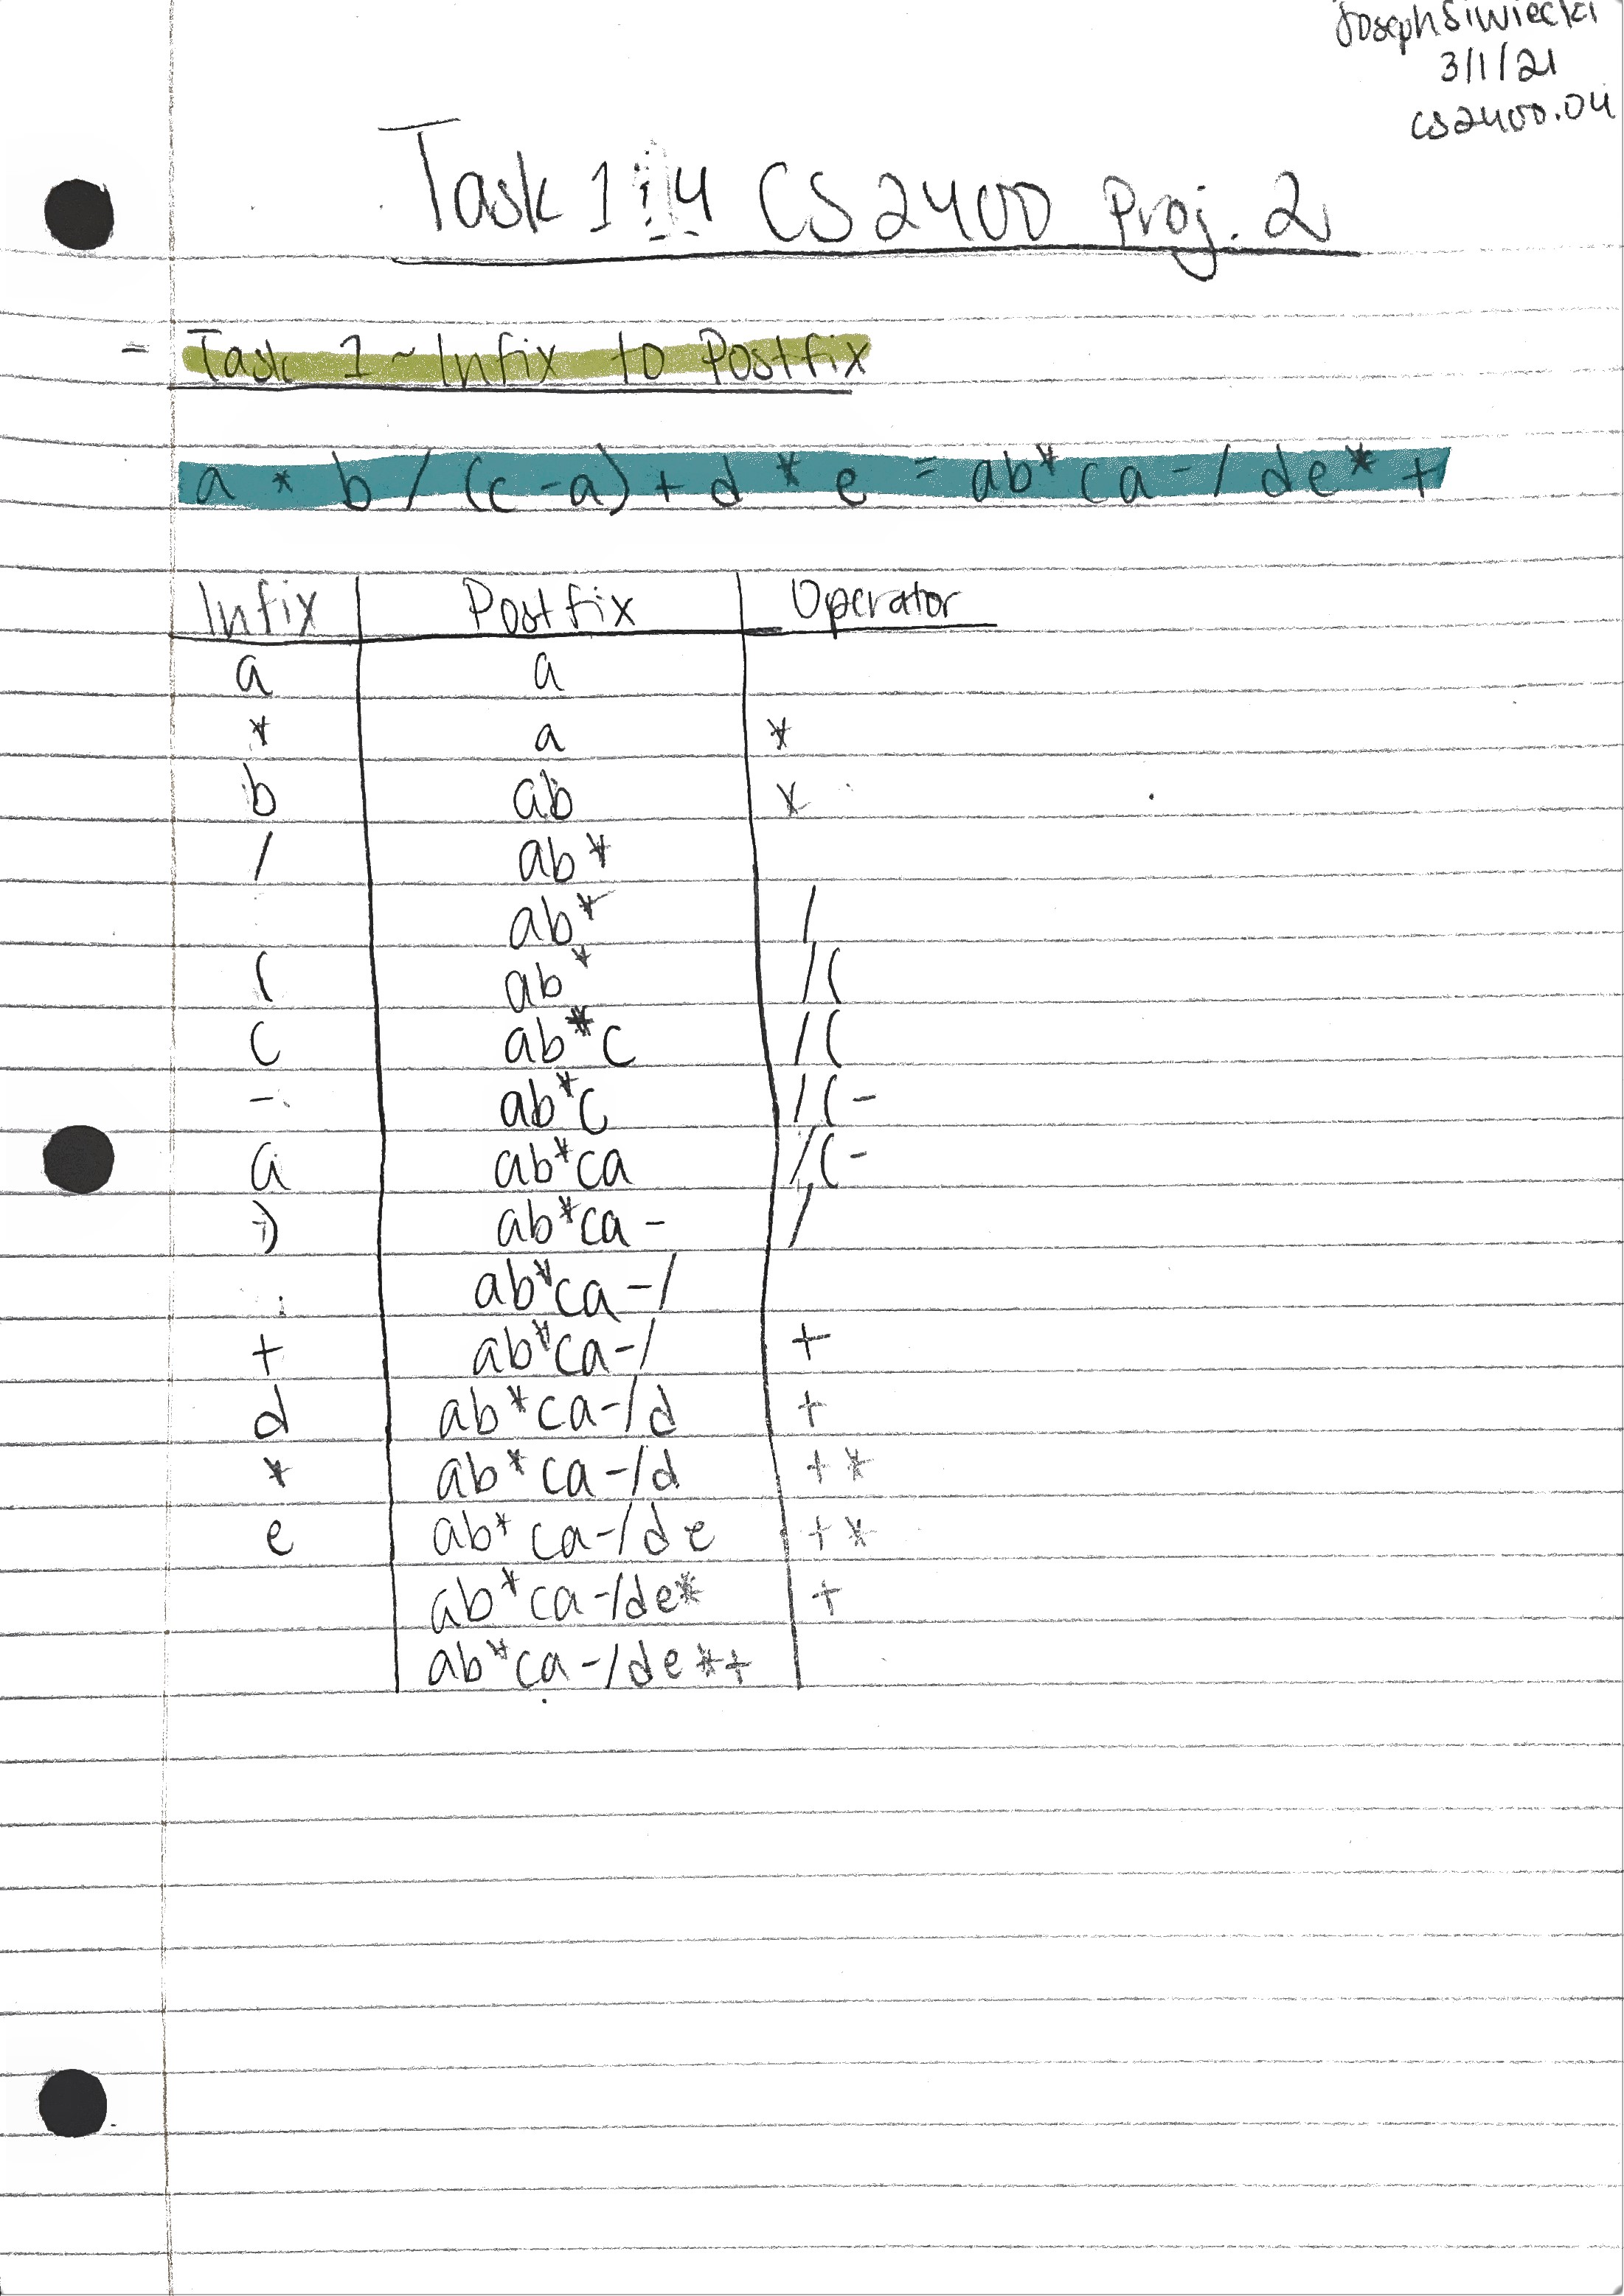 Joseph Siwiecki
3/1/21
CS2400.04
Task 1 : 4 CS 2400 Proj. 2
- Task 1 ~ Infix to Postfix
a * b / (c - a) + d * e = ab*ca-/de*+
Infix Postfix Operator
a a
* a *
b ab *
/ ab*
ab* /
( ab* /(
c ab*c /(
- ab*c /(-
a ab*ca /(-
) ab*ca- /
ab*ca-/
+ ab*ca-/ +
d ab*ca-/d +
* ab*ca-/d +*
e ab*ca-/de +*
ab*ca-/de* +
ab*ca-/de*+